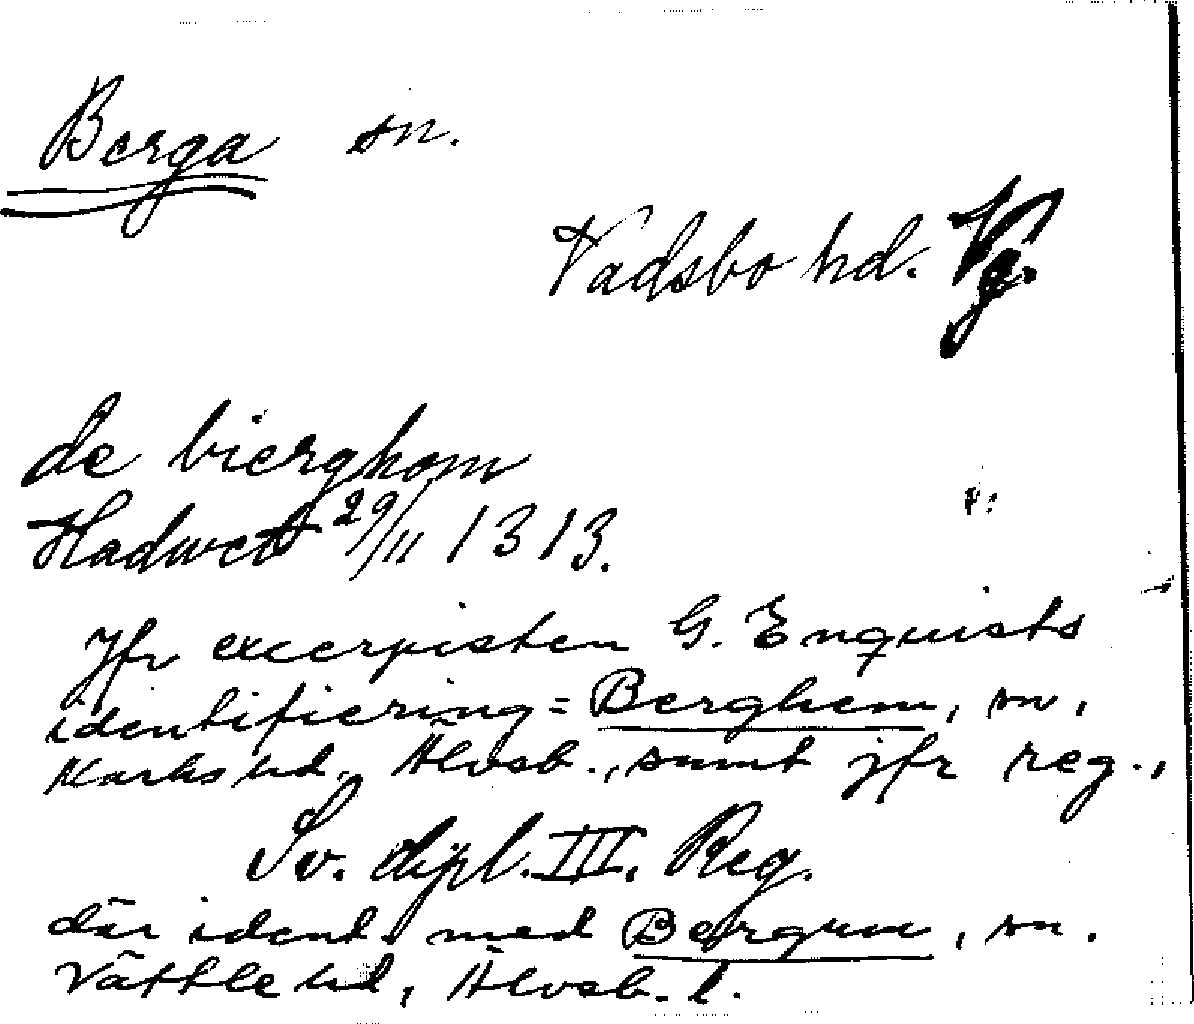 Berga sn.
Vadsbo hd. Vg.
de bierghom
Hadwet 29/11 1313.
Jfr excerpisten G. Enquists
identifiering = Berghem, sn,
Marks hd, Älvsb., samt jfr reg.,
Sv. dipl. III. Reg.
där ident. med Bergum, sn.
Vättle hd, Älvsb. l.